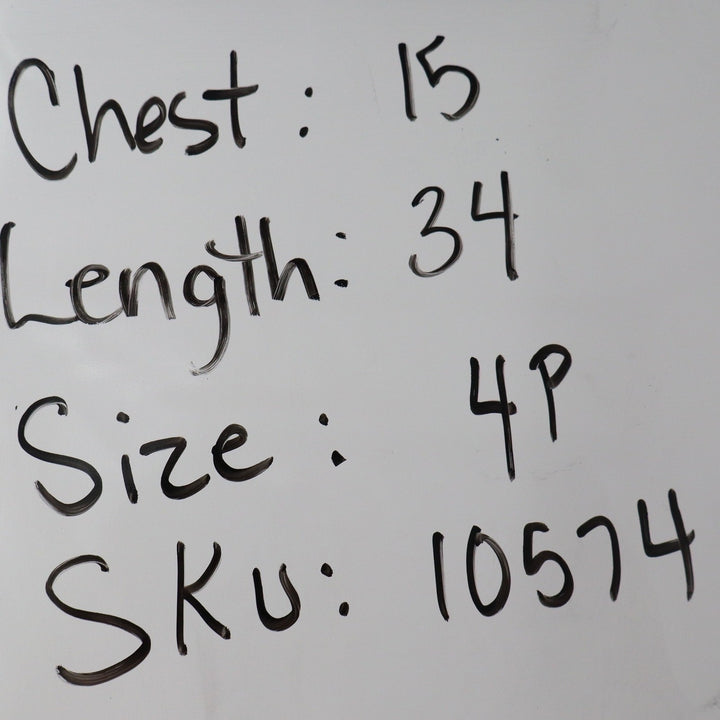 Chest: 15
Length: 34
Size: 4P
SKU: 10574